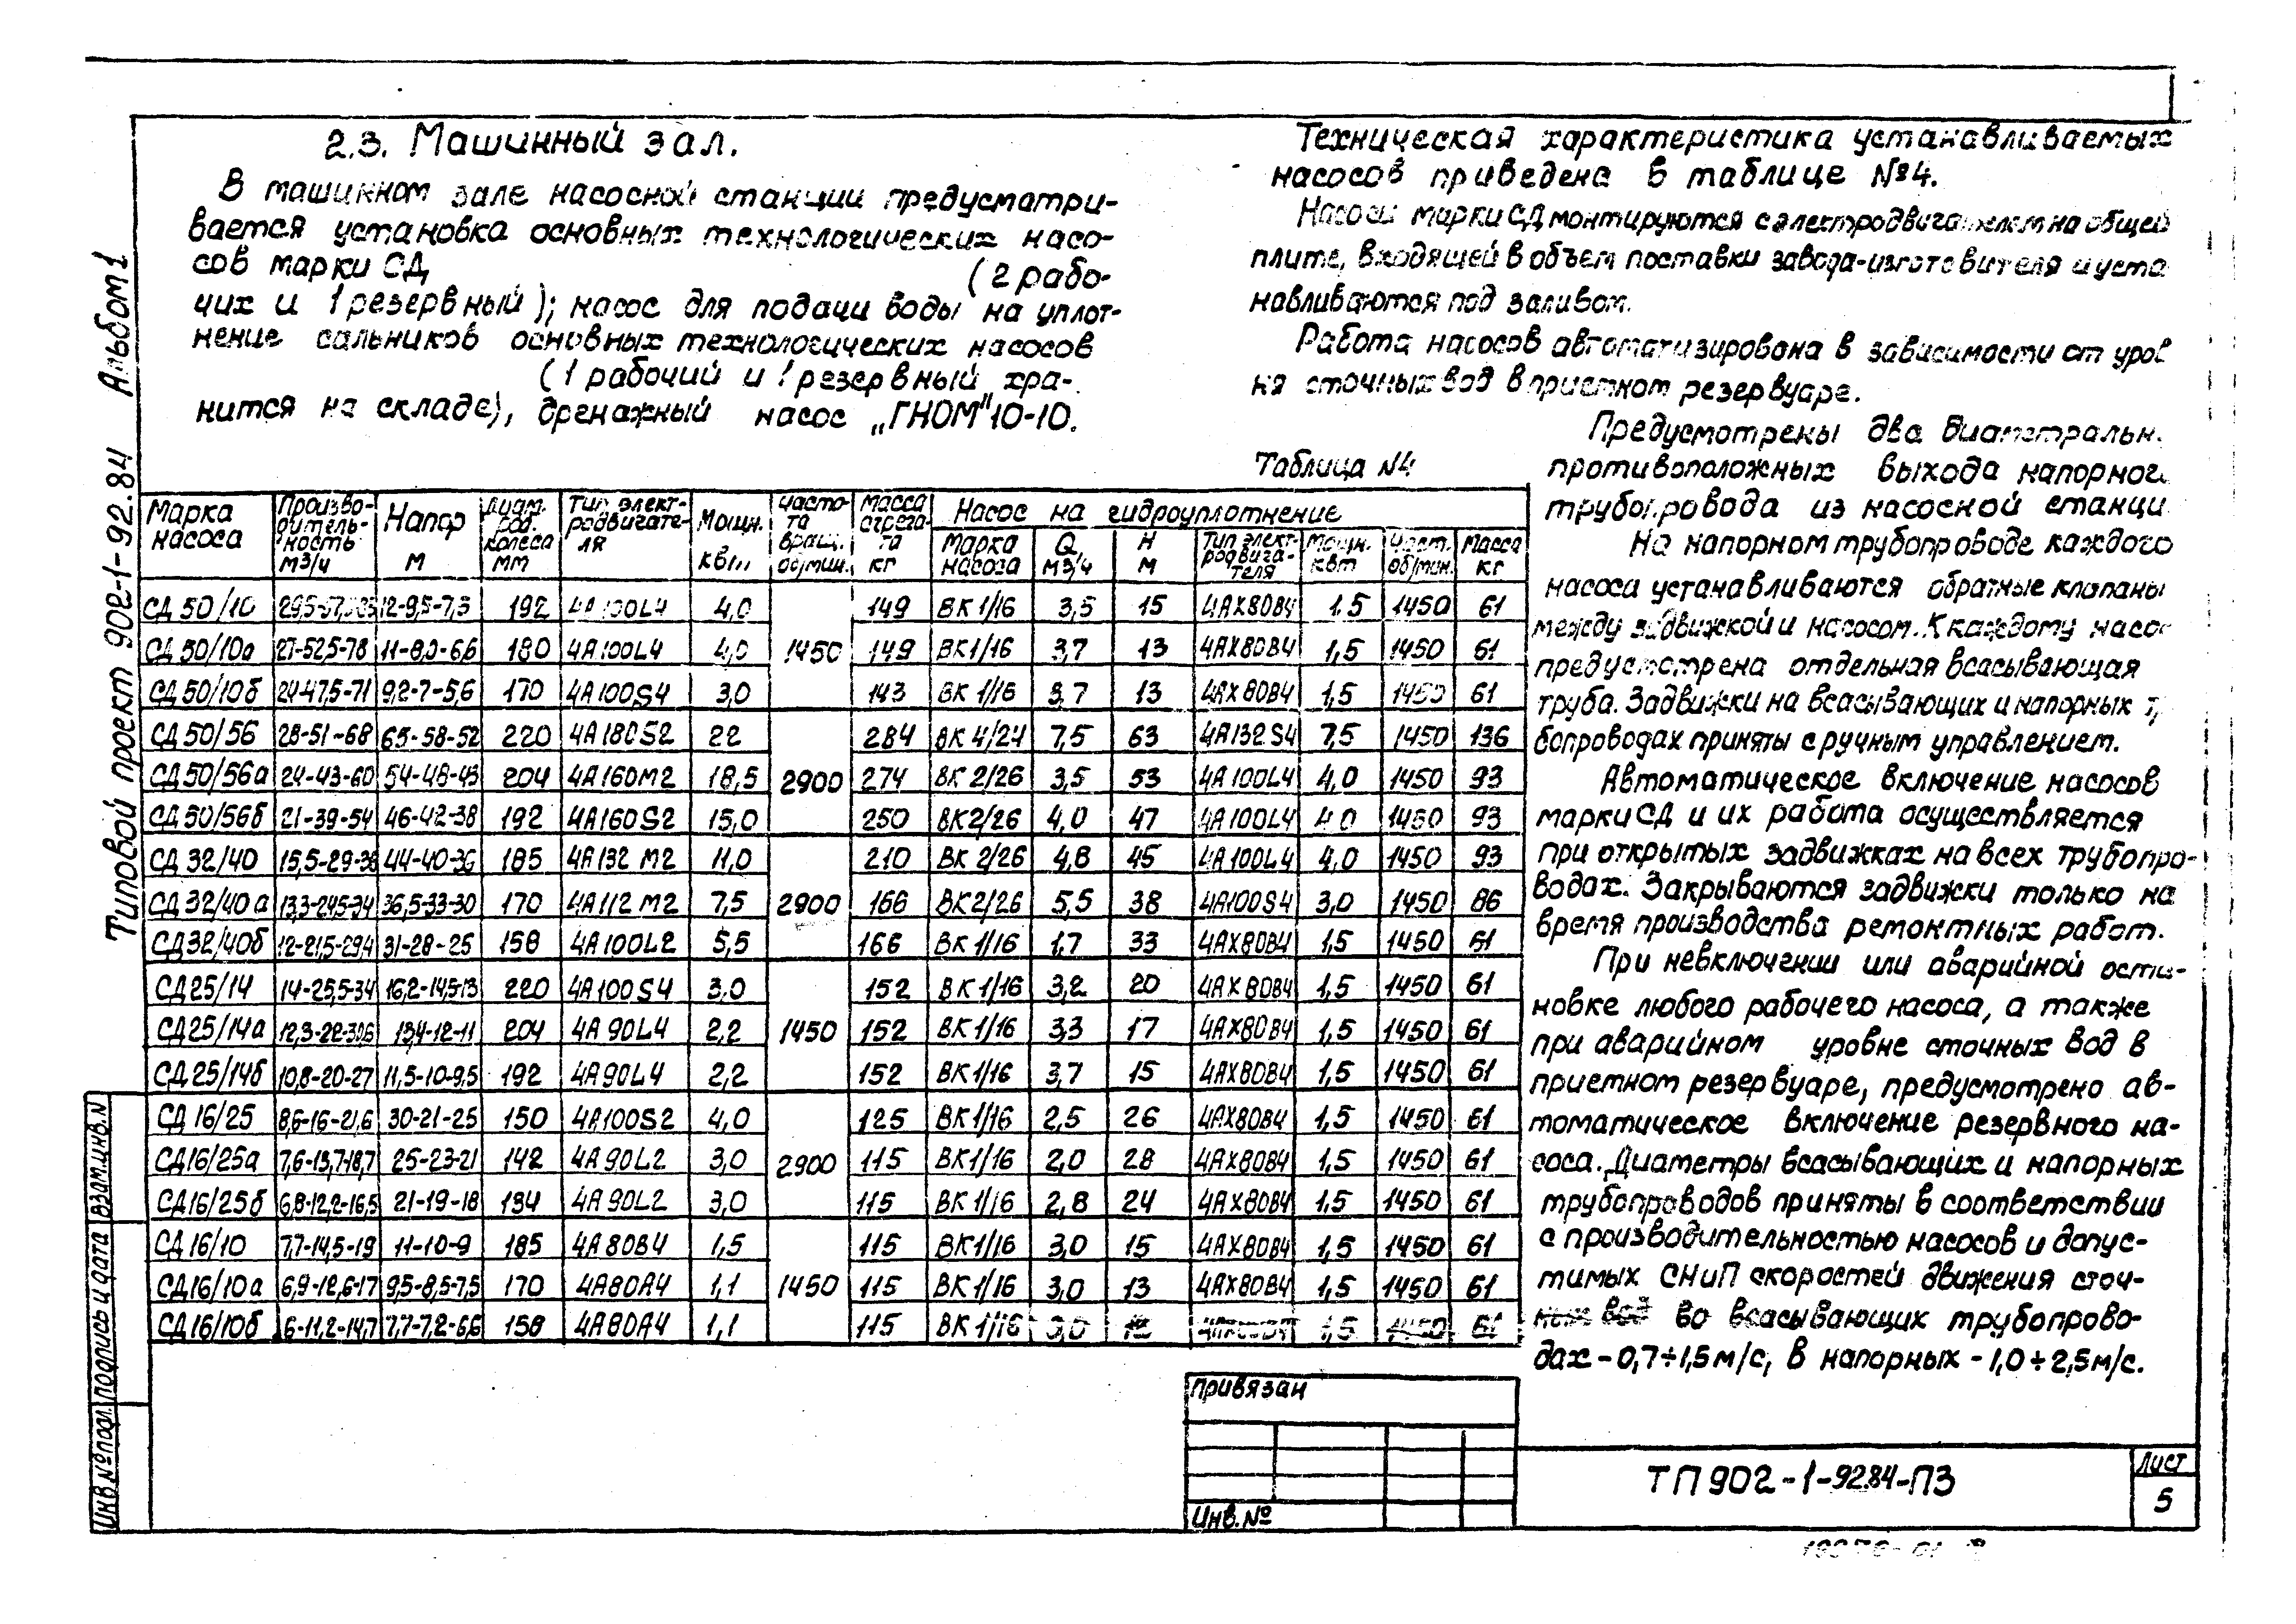 2.3. Машинный зал.
В машинном зале насосной станции предусматри-
вается установка основных технологических насо-
сов марки СД (2 рабо-
чих и 1 резервный); насос для подачи воды на уплот-
нение сальников основных технологических насосов
(1 рабочий и 1 резервный хра-
нится на складе), дренажный насос „ГНОМ" 10-10.
Техническая характеристика устанавливаемых
насосов приведена в таблице №4.
Насосы марки СД монтируются с электродвигателем на общей
плите, входящей в объем поставки завода-изготовителя и уста
навливаются под заливом.
Работа насосов автоматизирована в зависимости от уров
ня сточных вод в приемном резервуаре.
Предусмотрены два диаметральн.
противоположных выхода напорног.
трубопровода из насосной станци
На напорном трубопроводе каждого
насоса устанавливаются обратные клапаны
между задвижкой и насосом. К каждому насос
предусмотрена отдельная всасывающая
труба. Задвижки на всасывающих и напорных т
бопроводах приняты с ручным управлением.
Автоматическое включение насосов
марки СД и их работа осуществляется
при открытых задвижках на всех трубопро-
водах. Закрываются задвижки только на
время производства ремонтных работ.
При невключении или аварийной оста-
новке любого рабочего насоса, а также
при аварийном уровне сточных вод в
приемном резервуаре, предусмотрено ав-
томатическое включение резервного на-
соса. Диаметры всасывающих и напорных
трубопроводов приняты в соответствии
с производительностью насосов и допус-
тимых СНиП скоростей движения сточ-
ных вод во всасывающих трубопрово-
дах - 0,7÷1,5 м/с, в напорных - 1,0÷2,5 м/с.
Таблица №4
Марка насоса | Производительность м3/ч | Напор м | Диам. раб. колеса мм | Тип электродвигателя | Мощн. квт | Частота вращ. об/мин. | Масса агрегата кг | Насос на гидроуплотнение
Марка насоса | Q м3/ч | H м | Тип электродвигателя | Мощн. квт | Част. об/мин. | Масса кг
СД 50/10 12-9,5-7,3 192 4А100L4 4,0 149 ВК 1/16 3,5 15 4АХ80В4 1,5 1450 61
СД 50/10а 27-52,5-78 11-8,0-6,6 180 4А100L4 4,0 1450 149 ВК 1/16 3,7 13 4АХ80В4 1,5 1450 61
СД 50/10б 24-47,5-71 9,2-7-5,6 170 4А100S4 3,0 143 ВК 1/16 3,7 13 4АХ80В4 1,5 1450 61
СД 50/56 28-51-68 65-58-52 220 4А180S2 22 284 ВК 4/24 7,5 63 4А132S4 7,5 1450 136
СД 50/56а 24-43-60 54-48-43 204 4А160М2 18,5 2900 274 ВК 2/26 3,5 53 4А100L4 4,0 1450 93
СД 50/56б 21-39-54 46-42-38 192 4А160S2 15,0 250 ВК2/26 4,0 47 4А100L4 4,0 1450 93
СД 32/40 15,5-29-38 44-40-36 185 4А132 М2 11,0 210 ВК 2/26 4,8 45 4А100L4 4,0 1450 93
СД 32/40 а 13,3-24,5-34 36,5-33-30 170 4А112 М2 7,5 2900 166 ВК2/26 5,5 38 4А100S4 3,0 1450 86
СД 32/40б 12-21,5-29,4 31-28-25 158 4А100L2 5,5 166 ВК 1/16 1,7 33 4АХ80В4 1,5 1450 61
СД 25/14 14-25,5-34 16,2-14,5-13 220 4А100S4 3,0 152 ВК 1/16 3,2 20 4АХ80В4 1,5 1450 61
СД 25/14а 12,3-22-30,6 13,4-12-11 204 4А90L4 2,2 1450 152 ВК 1/16 3,3 17 4АХ80В4 1,5 1450 61
СД 25/14б 10,8-20-27 11,5-10-9,5 192 4А90L4 2,2 152 ВК 1/16 3,7 15 4АХ80В4 1,5 1450 61
СД 16/25 8,6-16-21,6 30-21-25 150 4А100S2 4,0 125 ВК 1/16 2,5 26 4АХ80В4 1,5 1450 61
СД16/25а 7,6-13,7-18,7 25-23-21 142 4А90L2 3,0 2900 115 ВК1/16 2,0 28 4АХ80В4 1,5 1450 61
СД16/25б 6,8-12,2-16,5 21-19-18 134 4А90L2 3,0 115 ВК 1/16 2,8 24 4АХ80В4 1,5 1450 61
СД 16/10 7,7-14,5-19 11-10-9 185 4А80В4 1,5 115 ВК1/16 3,0 15 4АХ80В4 1,5 1450 61
СД16/10а 6,9-12,6-17 9,5-8,5-7,5 170 4А80А4 1,1 1450 115 ВК 1/16 3,0 13 4АХ80В4 1,5 1450 61
СД 16/10б 6-11,2-14,7 7,7-7,2-6,6 158 4А80А4 1,1 115 ВК 1/16 3,0 1,5 1450 61
Типовой проект 902-1-92.84 Альбом 1
Взам.инв.N
Подпись и дата
Инв.№подл.
Привязан
Инв.№
ТП 902-1-92.84-ПЗ
Лист
5